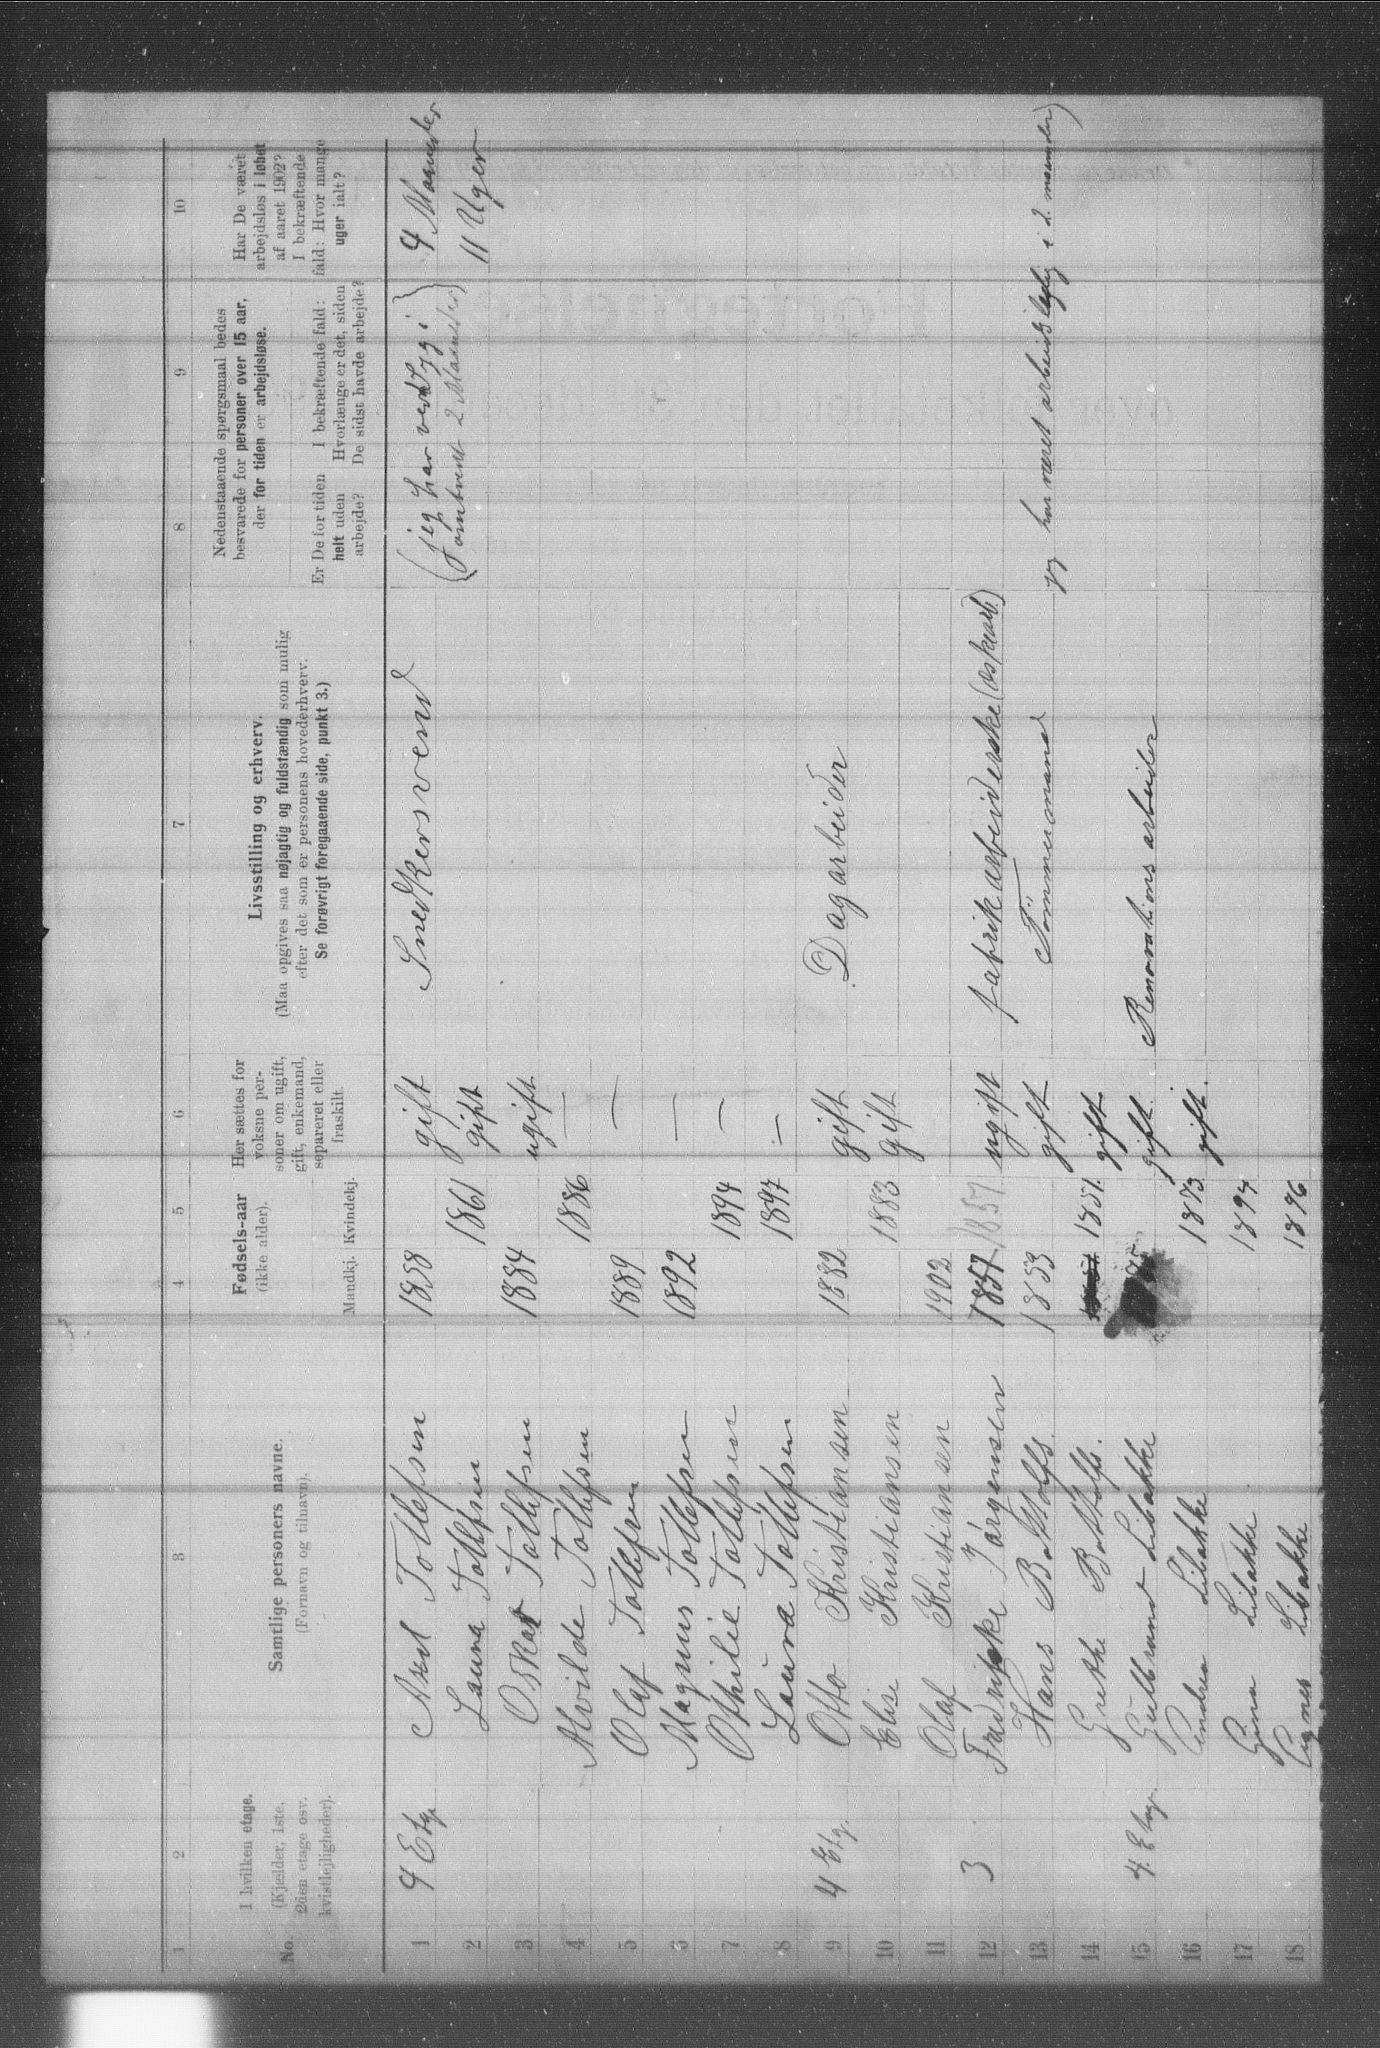 1 2 3 4 5 6 7 8 9 10
No.
I hvilken etage.
(Kjælder, 1ste,
2den etage osv.
kvistlejligheder).
Samtlige personers navne.
(Fornavn og tilnavn).
Fødsels-aar
(ikke alder).
Mandkj. Kvindekj.
Her sættes for
voksne per-
soner om ugift,
gift, enkemand,
separeret eller
fraskilt.
Livsstilling og erhverv.
(Maa opgives saa nøjagtig og fuldstændig som mulig
efter det som er personens hovederhverv.
Se forøvrigt foregaaende side, punkt 3.)
Nedenstaaende spørgsmaal bedes
besvarede for personer over 15 aar,
der for tiden er arbejdsløse.
Er De for tiden
helt uden
arbejde?
I bekræftende fald:
Hvorlænge er det, siden
De sidst havde arbejde?
Har De været
arbejdsløs i løbet
af aaret 1902?
I bekræftende
fald: Hvor mange
uger ialt?
1 4 Etg Axel Tollefsen 1858 gift Snedkersvend (jeg har i 4 Maaneder
2 Laura Tollefsen 1861 gift omtrent 2 Maaneder) 11 Uger
3 Oskar Tollefsen 1884 ugift
4 Alvilde Tollefsen 1886 —
5 Olaf Tollefsen 1889 —
6 Magnus Tollefsen 1892 —
7 Othilie Tollefsen 1894 —
8 Laura Tollefsen 1897 —
9 4 Etg. Otto Kristiansen 1882 gift Dagarbeider
10 Elise Kristiansen 1883 gift
11 Olaf Kristiansen 1902
12 3 Fredrikke Jørgensen 1857 1857 ugift fabrikarbeiderske (æskearb.)
13 Hans Bottolfs. 1853 gift Tømmermand jeg har været arbeidsledig i 2 maaneder)
14 Grethe Bottolfs. 1851. gift
15 4. Etag. Gulbrand Libakke 75 gift. Renovations arbeider
16 Andrea Libakke 1873 gift.
17 Gina Libakke 1894
18 Agnes Libakke 1896